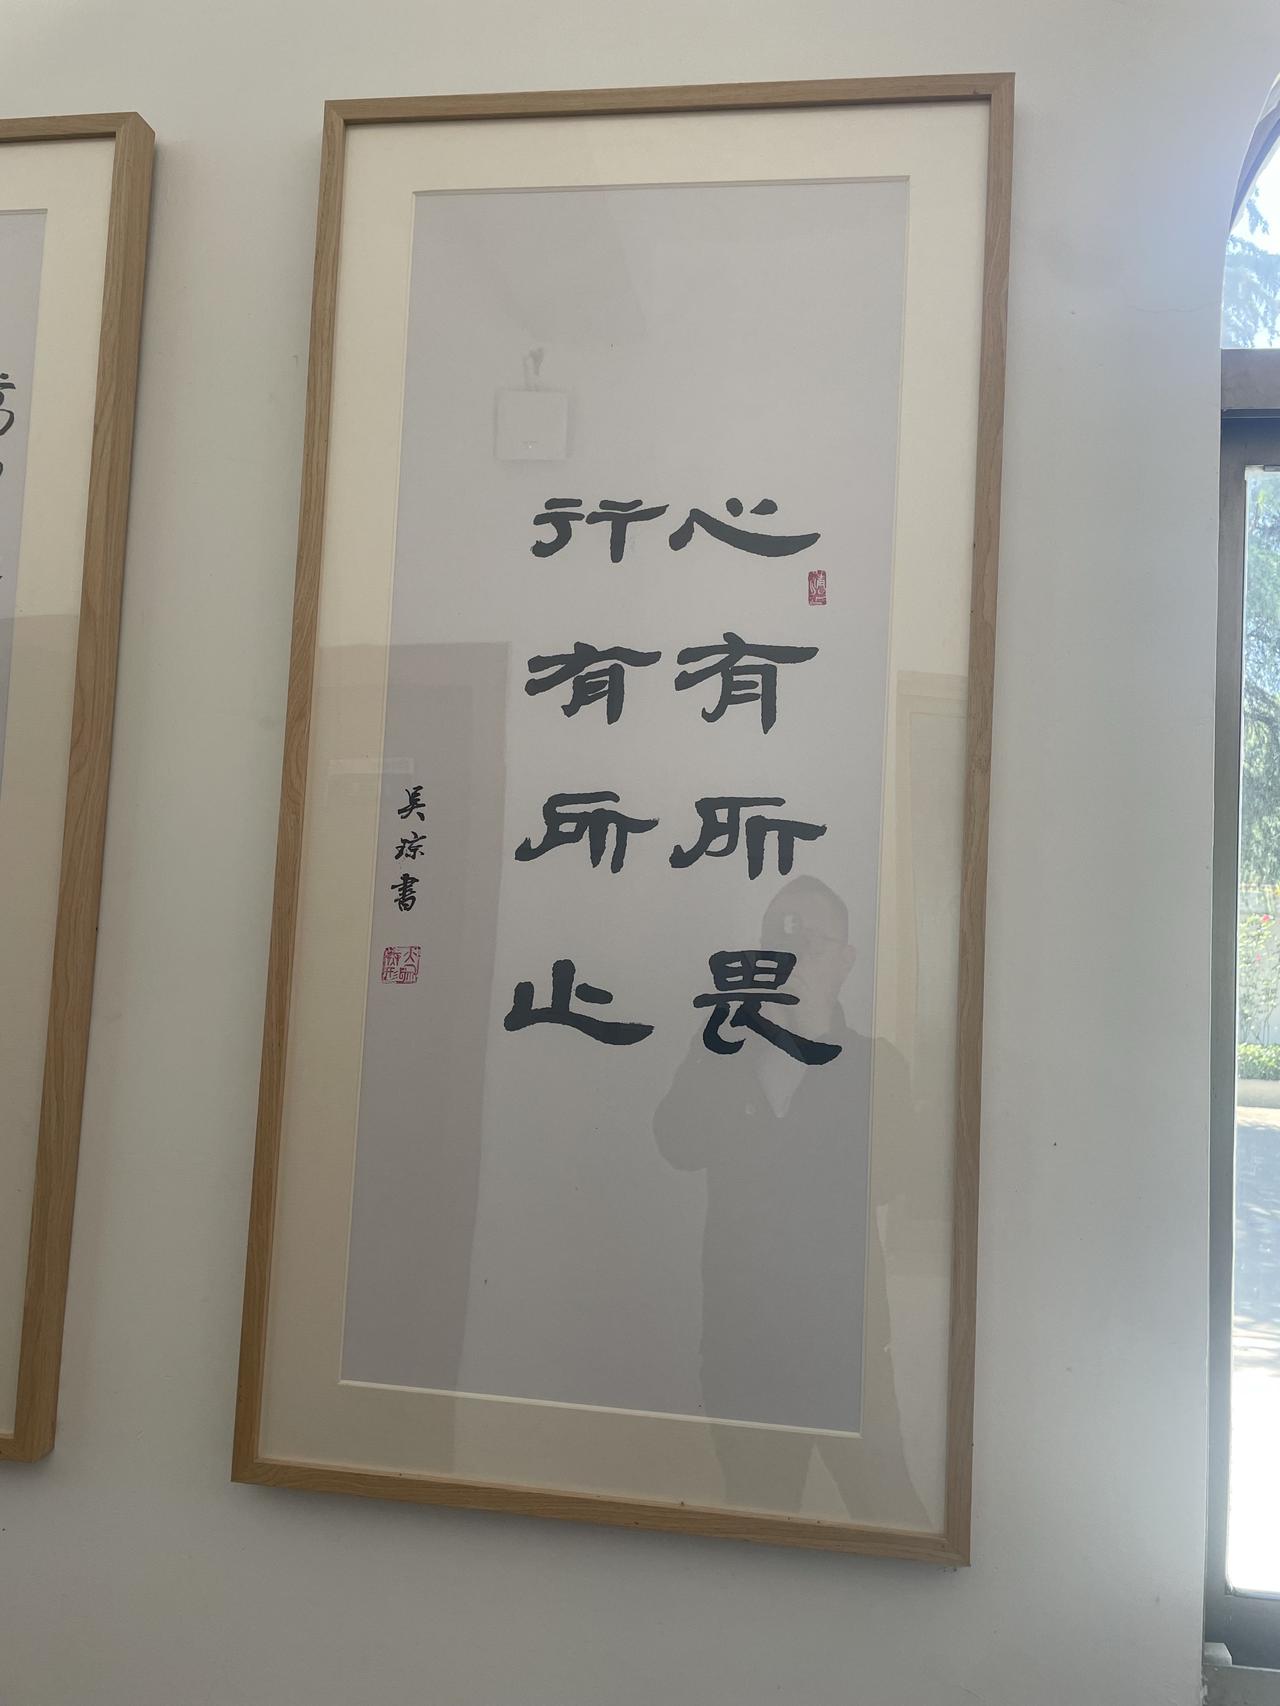 心有所畏
行有所止
吴琮书